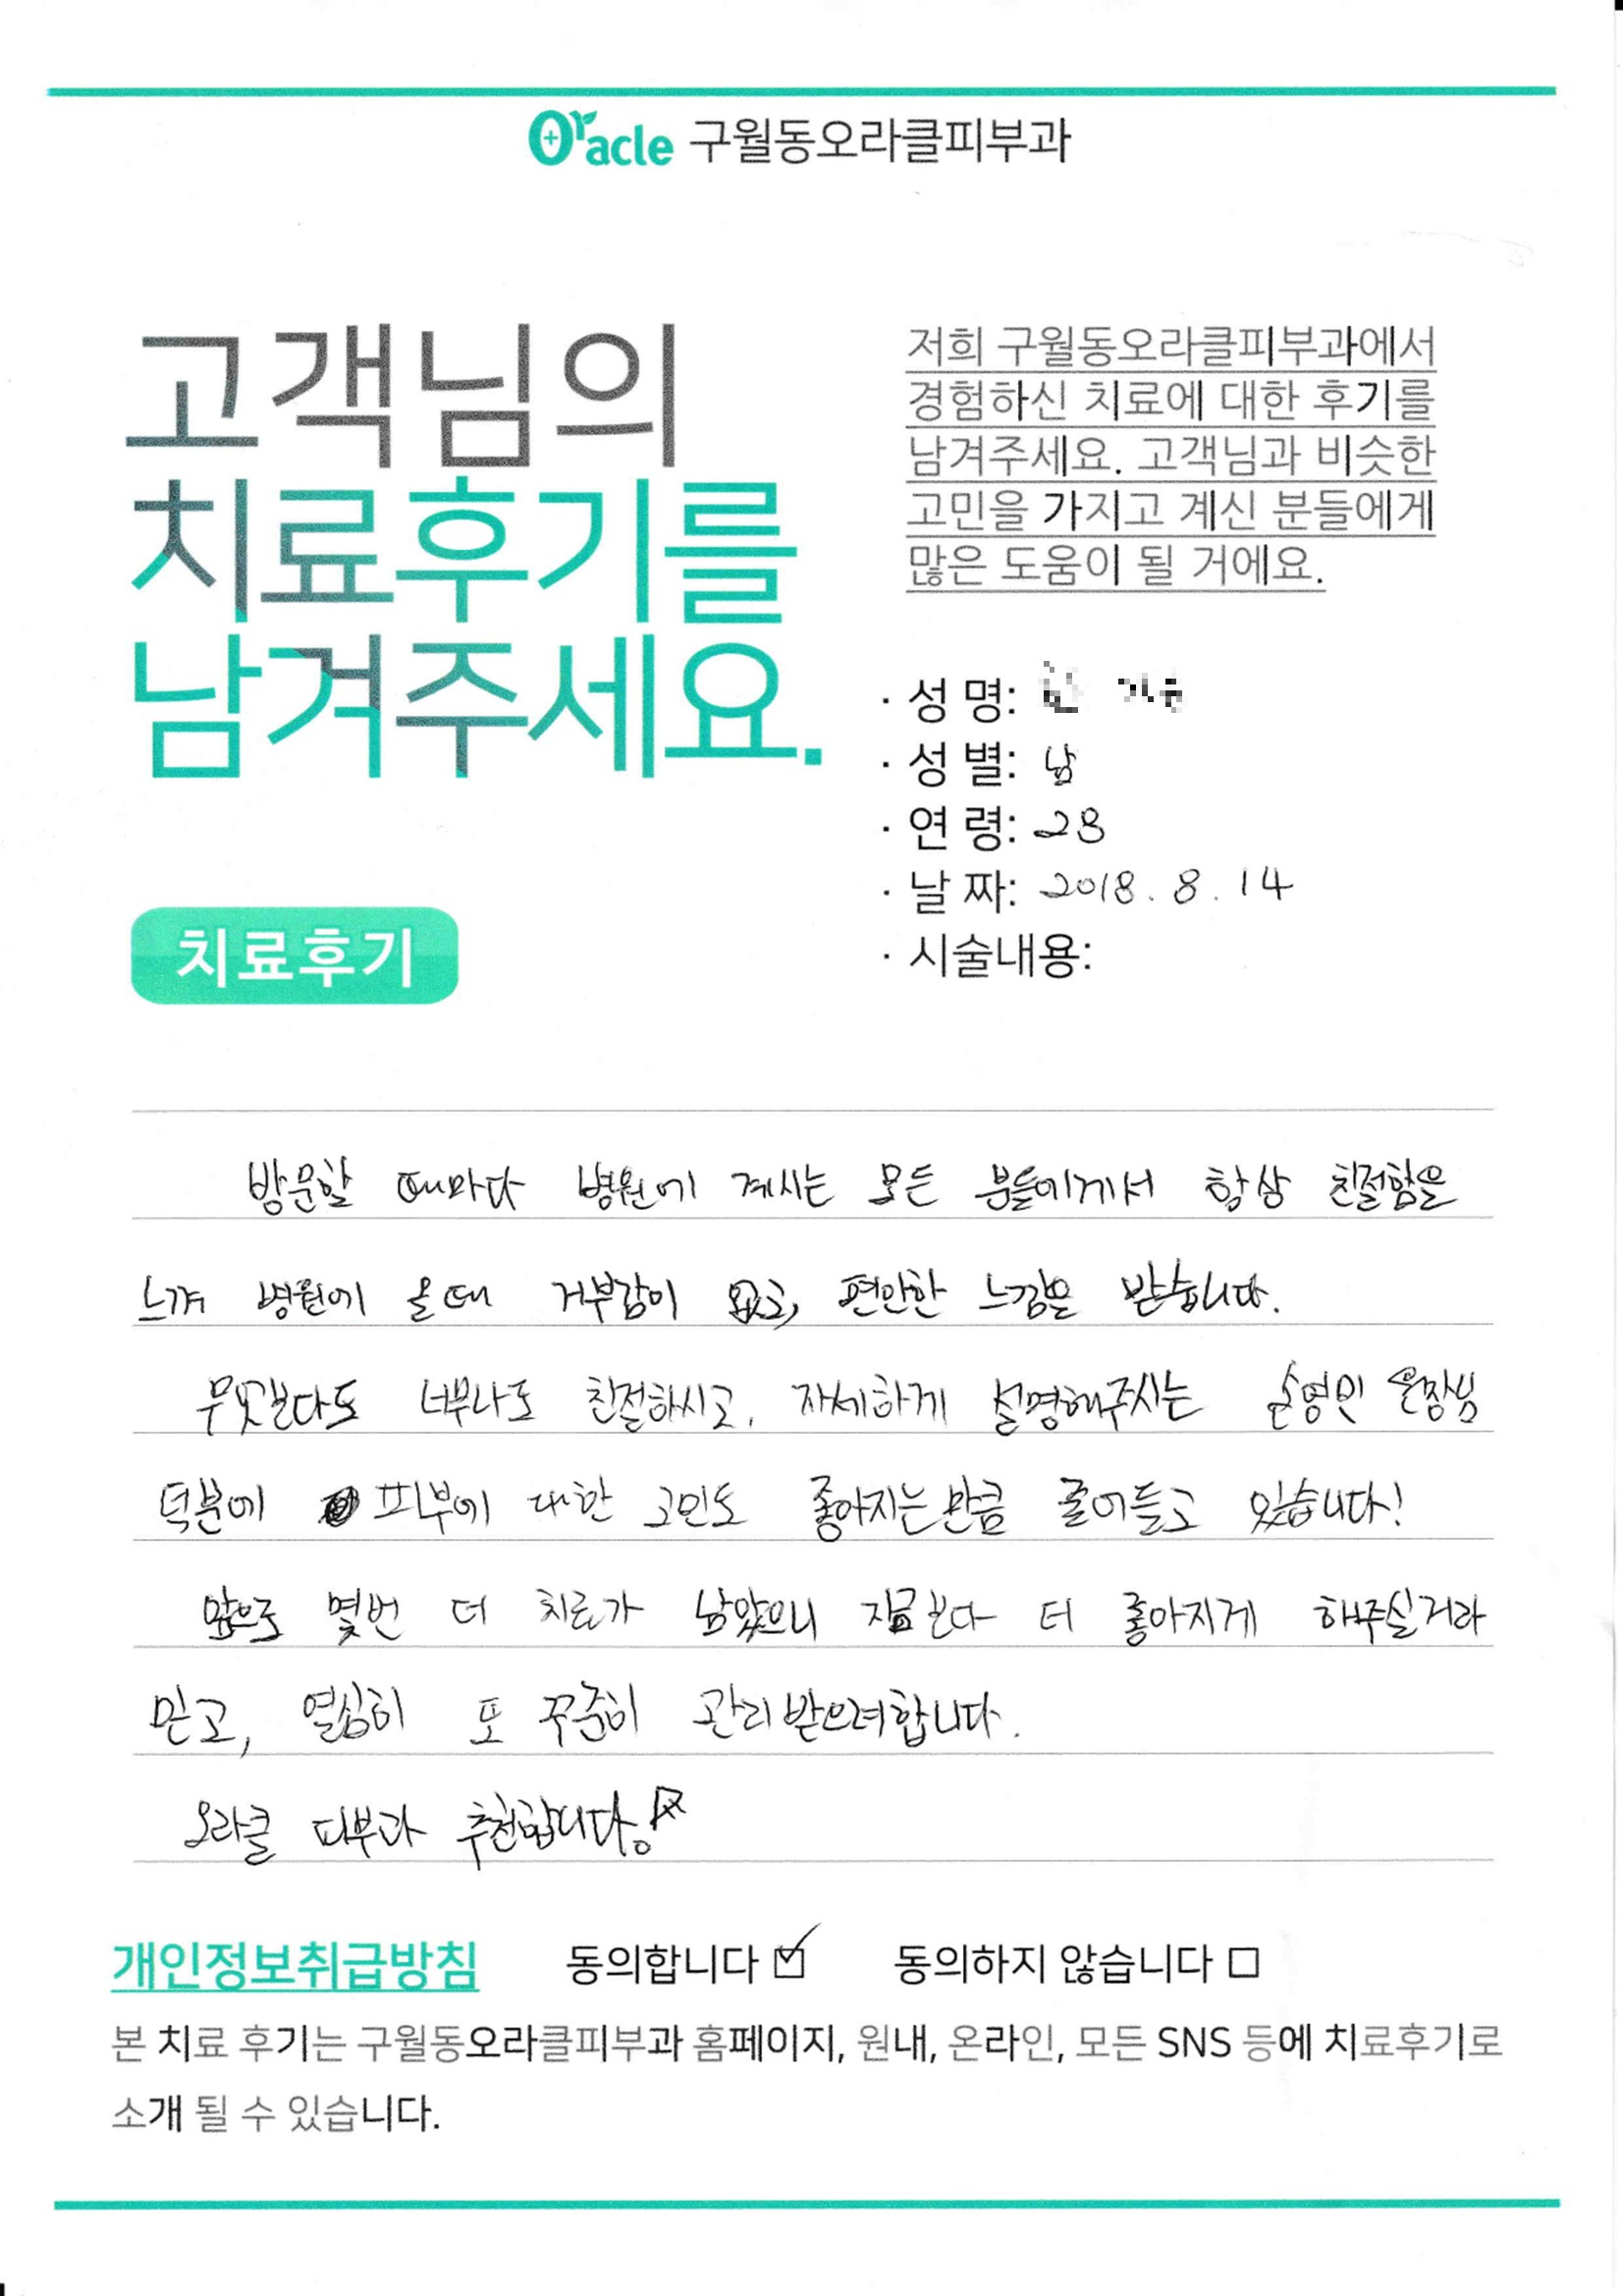 Oracle 구월동오라클피부과
고객님의
치료후기를
남겨주세요.
저희 구월동오라클피부과에서
경험하신 치료에 대한 후기를
남겨주세요. 고객님과 비슷한
고민을 가지고 계신 분들에게
많은 도움이 될 거에요.
· 성 명:
· 성 별: 남
· 연 령: 28
· 날 짜: 2018. 8. 14
· 시술내용:
치료후기
방문할 때마다 병원에 계시는 모든 분들에게서 항상 친절함을
느껴 병원에 올때 거부감이 없고, 편안한 느낌을 받습니다.
무엇보다도 너무나도 친절하시고, 자세하게 설명해주시는 손영민 원장님
덕분에 피부에 대한 고민도 좋아지는만큼 줄어들고 있습니다!
앞으로 몇번 더 치료가 남았으니 지금보다 더 좋아지게 해주실거라
믿고, 열심히 또 꾸준히 관리받으려합니다.
오라클 피부과 추천합니다!
개인정보취급방침 동의합니다 ☑ 동의하지 않습니다 □
본 치료 후기는 구월동오라클피부과 홈페이지, 원내, 온라인, 모든 SNS 등에 치료후기로
소개 될 수 있습니다.